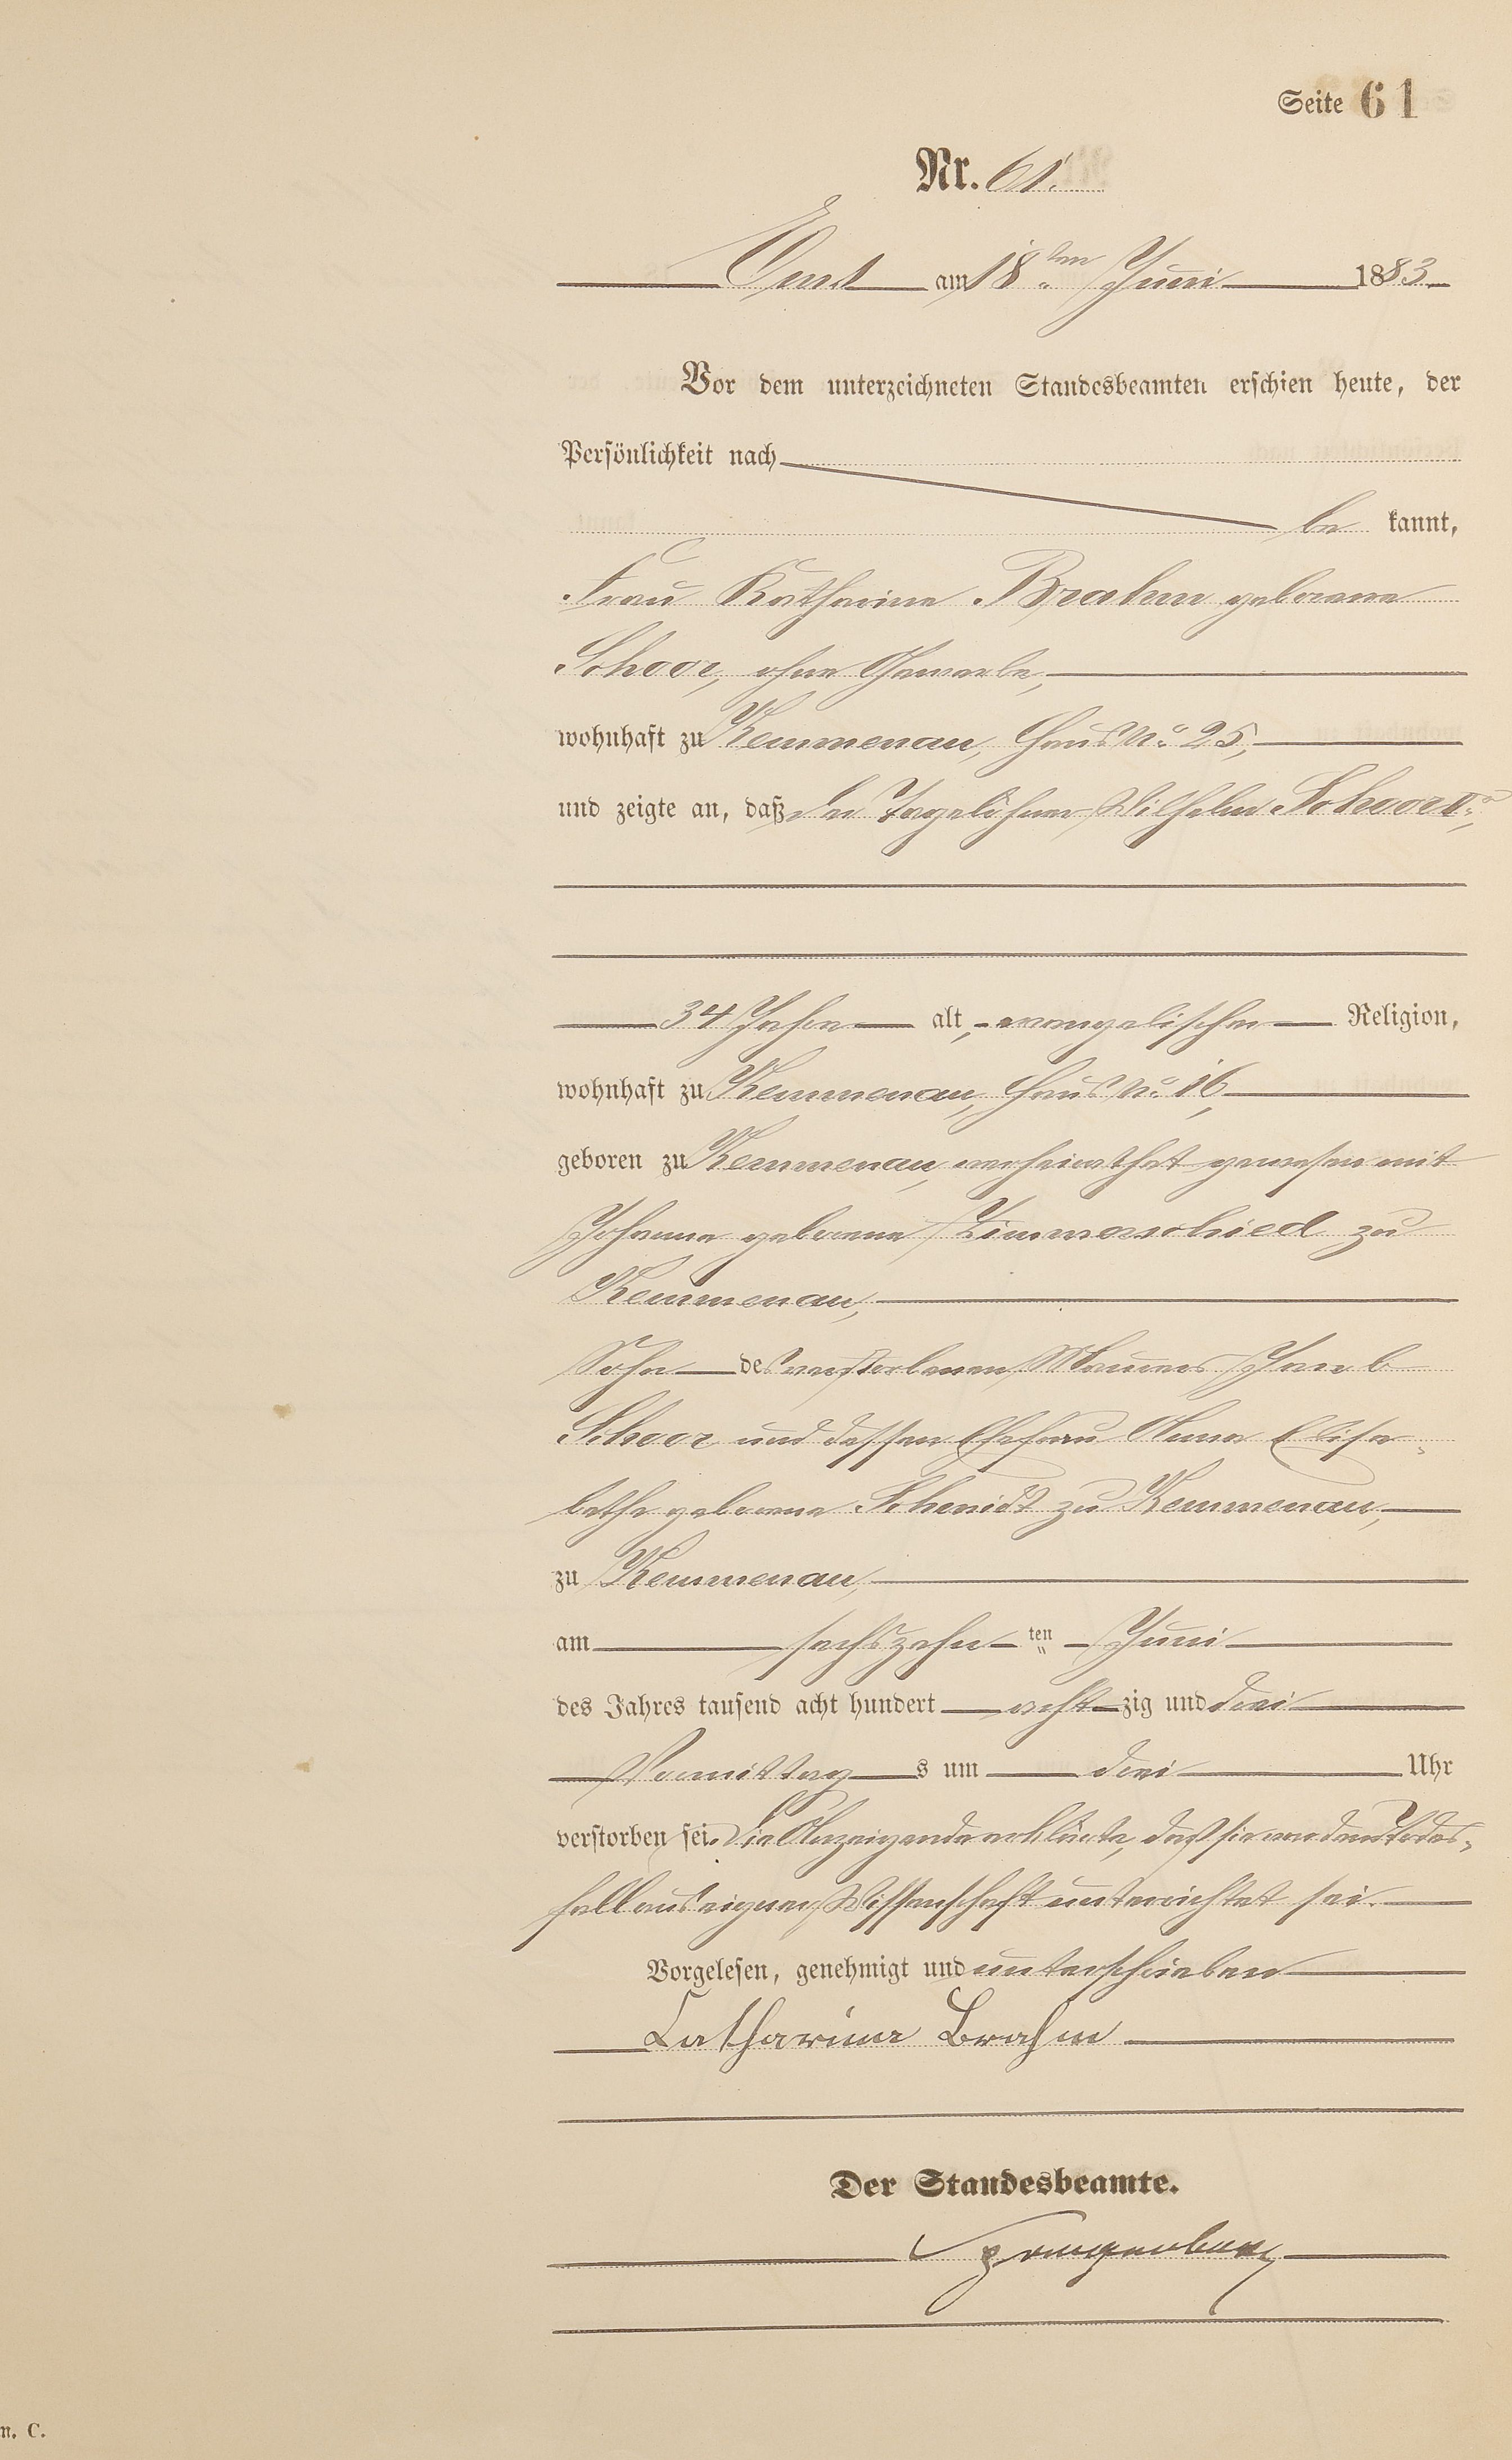 Seite 61
Nr. 61.
Ems am 18ten Juni 1883.
Vor dem unterzeichneten Standesbeamten erschien heute, der
Persönlichkeit nach
be kannt,
Frau Katharina Brahm geborene
Schoor, ohne Gewerbe,
wohnhaft zu Kemmenau, Haus No. 25,
und zeigte an, daß der Tagelöhner Wilhelm Schoor
34 Jahre alt, evangelischer Religion,
wohnhaft zu Kemmenau, Haus No. 16,
geboren zu Kemmenau, verheirathet gewesen mit
Johanna geborene Zimmerschied zu
Kemmenau,
Sohn des verstorbenen Maurers Jacob
Schoor und dessen Ehefrau Anna Elisa-
betha geborene Schmidt zu Kemmenau,
zu Kemmenau,
am sechszehn ten Juni
des Jahres tausend acht hundert acht zig und drei
Vormittag s um drei Uhr
verstorben sei. Die Anzeigende erklärte, daß sie von dem Todes-
fall aus eigner Wissenschaft unterrichtet sei.
Vorgelesen, genehmigt und unterschrieben
Catharina Brahm
Der Standesbeamte.
n. C.